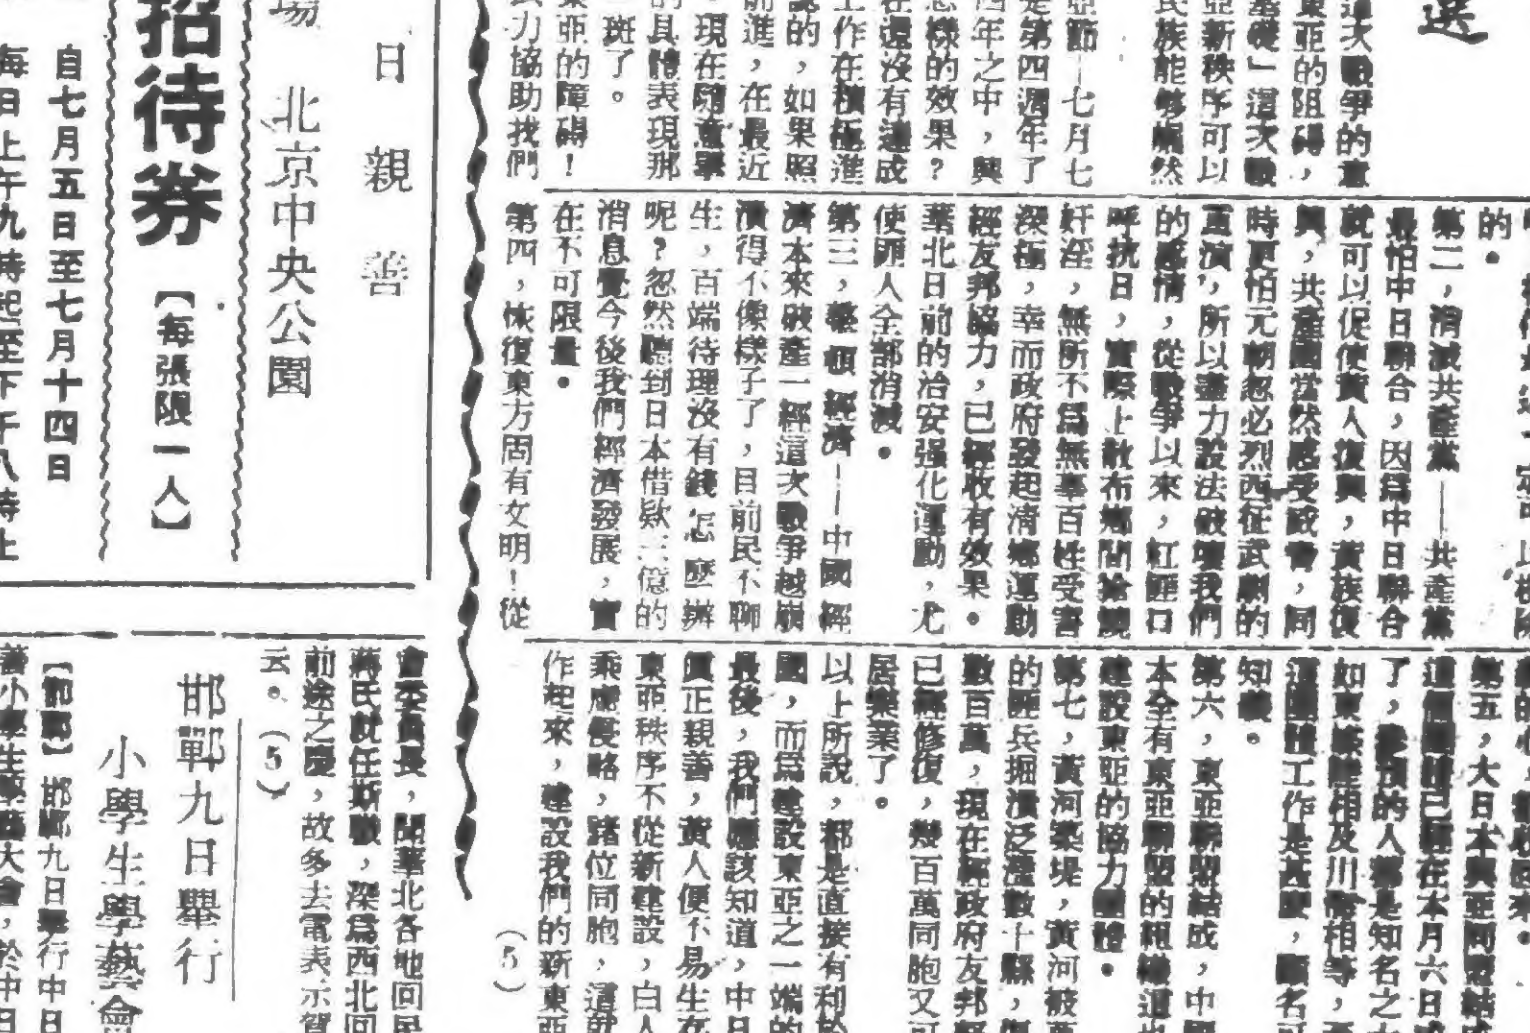 選
這次戰爭的意
東亞的阻碍，
基礎」這次戰
亞新秩序可以
民族能够
亞節—七月七
是第四週年了
四年之中，興
怎樣的效果？
在還沒有達成
工作在積極進
說的，如果照
前進，在最近
，現在隨意舉
的具體表現那
斑了。
東亞的障碍！
力協助我們
的。
第二，消滅共產黨——共產黨
最怕中日聯合，因爲中日聯合
就可以促使黃人復興，黃族復
興，共產國當然感受威脅，同
時更怕元朝忽必烈西征武劇的
重演，所以盡力設法破壞我們
的感情，從戰爭以來，紅匪口
呼抗日，實際上散布鄉間搶燒
奸淫，無所不爲無辜百姓受害
深極，幸而政府發起清鄉運動
經友邦協力，已經收有效果。
華北日前的治安强化運動，尤
使匪人全部消滅。
第三，整頓經濟——中國經
濟本來破產一經這次戰爭越崩
潰得不像樣子了，目前民不聊
生，百端待理沒有錢，怎麽辦
呢？忽然聽到日本借欵三億的
消息覺今後我們經濟發展，實
在不可限量。
第四，恢復東方固有文明！從
第五，大日本興亞同盟結
這個團體已經在本月六日
了，參預的人都是知名之
如東條陸相及川海相等，
這團體工作是甚麽，顧名
知義。
第六，東亞聯盟結成，中國
本全有東亞聯盟的組織這
建設東亞的協力團體。
第七，黃河築堤，黃河被
的匪兵掘潰泛濫數十縣，
數百萬，現在經政府友邦
已經修復，幾百萬同胞又可
居樂業了。
以上所說，都是直接有利於
國，而爲建設東亞之一端的
最後，我們應該知道，中日
真正親善，黃人便不易生在
東亞秩序不從新建設，白人
乘虛侵略，諸位同胞，這就
作起來，建設我們的新東亞
（5）
日親善
場 北京中央公園
招待券【每張限一人】
自七月五日至七月十四日
每日上午九時起至下午八時止
會委員長，關華北各地回民
蔣氏就任斯職，深爲西北回
前途之慶，故多去電表示賀
云。（5）
邯鄲九日舉行
小學生學藝會
【邯鄲】邯鄲九日舉行中日
小學生學藝大會，於中日